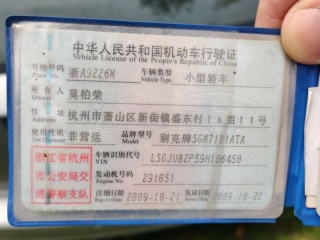 中华人民共和国机动车行驶证
Vehicle License of the People's Republic of China
号牌号码 浙A9226M 车辆类型 小型轿车
Plate No. Vehicle Type
所有人 莫柏荣
Owner
住址 杭州市萧山区新街镇盛东村16组11号
Address
使用性质 非营运 品牌型号 别克牌SGM7181ATA
Use Character Model
浙江省杭州市公安局交通警察支队
车辆识别代号 LSGJU82P59H106450
VIN
发动机号码 291051
Engine No.
注册日期 2009-10-21 发证日期 2009-10-22
Register Date Issue Date